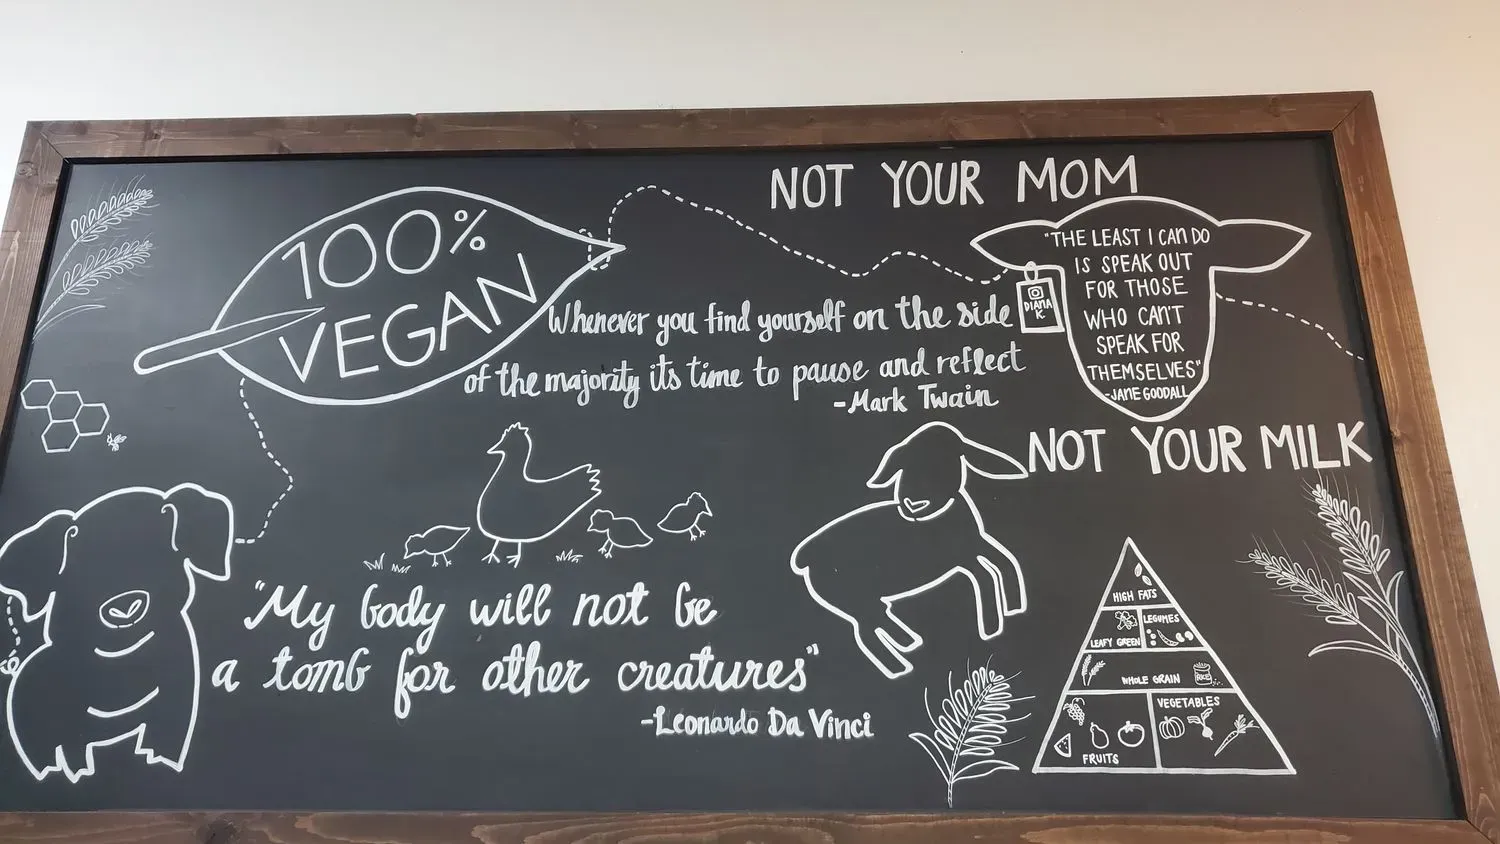 NOT YOUR MOM
100%
VEGAN
"THE LEAST I CAN DO
IS SPEAK OUT
FOR THOSE
WHO CAN'T
SPEAK FOR
THEMSELVES"
-JANE GOODALL
DIANA
K.
Whenever you find yourself on the side
of the majority its time to pause and reflect
-Mark Twain
NOT YOUR MILK
"My body will not be
a tomb for other creatures"
-Leonardo Da Vinci
HIGH FATS
LEAFY GREEN
LEGUMES
WHOLE GRAIN
RICE
FRUITS
VEGETABLES